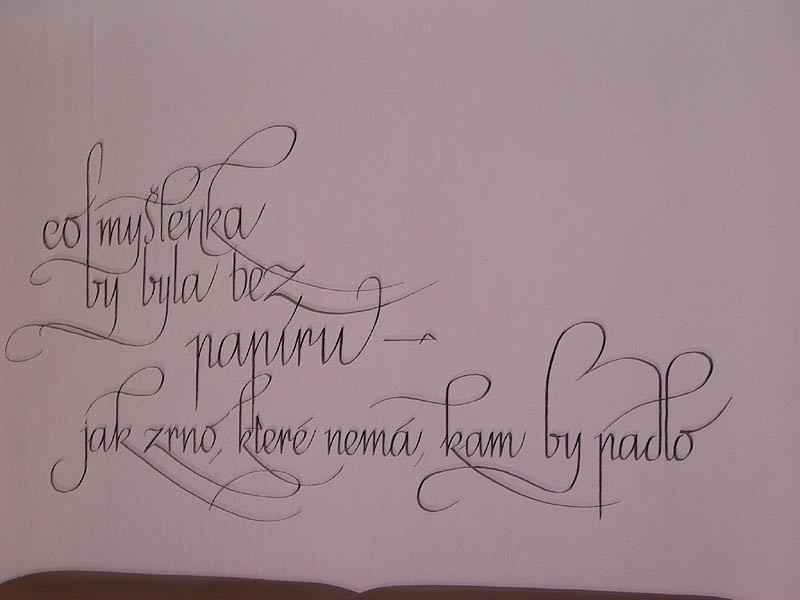 co myšlenka
by byla bez
papíru —
jak zrno, které nemá, kam by padlo